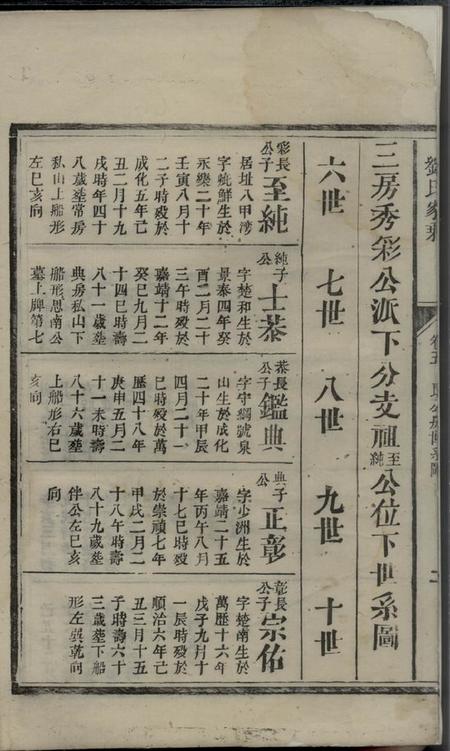 劉氏家乘
卷五
三房秀彩公派下分支祖至純公位下世系圖
六世
七世
八世
九世
十世
彩長公子
至純
居址八甲灣
字
鮮生於
永樂二十年
壬寅八月十
二子時歿於
成化五年己
丑二月十九
戌時年四十
八歲塟常房
私山上船形
左巳亥向
純子公
士恭
字楚和生於
景泰四年癸
酉二月二十
三午時歿於
嘉靖十二年
癸巳九月二
十四巳時壽
八十一歲塟
典房私山下
船形思南公
墓上牌第七
恭長公子
鑑典
字守綱號泉
山生於成化
二十年甲辰
四月二十一
巳時歿於萬
歷四十八年
庚申五月二
十一未時壽
八十六歲塟
上船形右巳
亥向
典子公
正彰
字少洲生於
嘉靖二十五
年丙午八月
十七巳時歿
於崇禎七年
甲戌二月二
十八午時壽
八十九歲塟
伴公左巳亥
向
彰長公子
宗佑
字楚南生於
萬歷十六年
戊子九月十
一辰時歿於
順治六年己
丑三月十五
子時壽六十
三歲塟下船
形左巽乾向